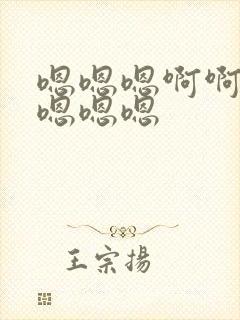 嗯嗯嗯啊啊
嗯嗯嗯
王宗揚